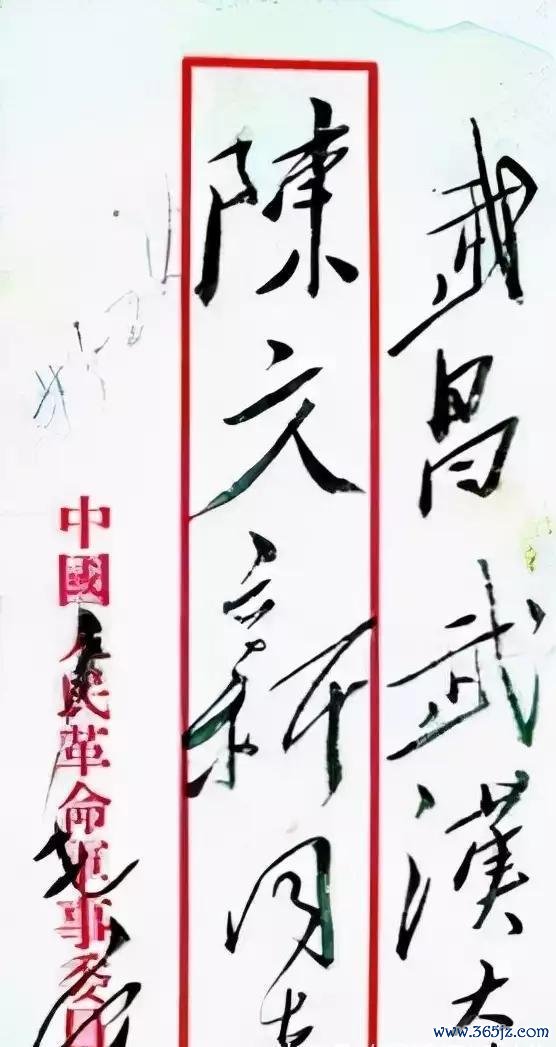 武昌武漢大
陳文新同志
中國人民革命軍事委員
www.365jz.com